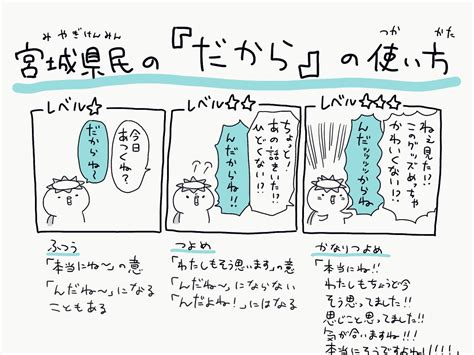 みやぎけんみん
つか
かた
宮城県民の『だから』の使い方
レベル☆
今日
あつくね?
だからね〜
ふつう
「本当にね〜」の意
「んだね〜」になる
こともある
レベル☆☆
ちょっと!
あの話きいた!?
ひどくない!?
んだからね!!
つよめ
「わたしもそう思います」の意
「んだね〜」にならない
「んだよね!」にはなる
レベル☆☆☆
ねぇ見た!!
このグッズめっちゃ
かわいくない!?
んだッッッからね
かなりつよめ
「本当にね!!
わたしもちょうど今
そう思ってました!!
思じこと思ってました!!
気が合いますね!!!
本当にそうですよね!!!!」